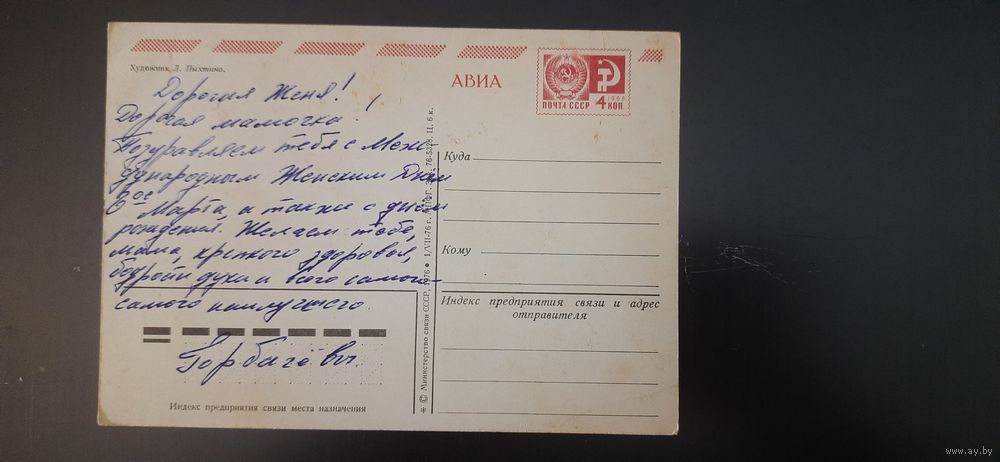 Художник Л. Пыхтина.
АВИА
ПОЧТА СССР
1966
4 КОП.
Дорогая Женя!
Дорогая мамочка!
Поздравляем тебя с Меж-
дународным Женским Днём
8ое Марта, а также с днём
рождения. Желаем тебе,
мама, крепкого здоровья,
бодрости духа и всего самого-
самого наилучшего.
Горбачёвы.
Индекс предприятия связи места назначения
* © Министерство связи СССР, 1976 ● 1/VII-76 г. 76-5328. Ц. 6 к.
Куда
Кому
Индекс предприятия связи и адрес
отправителя
www.ay.by